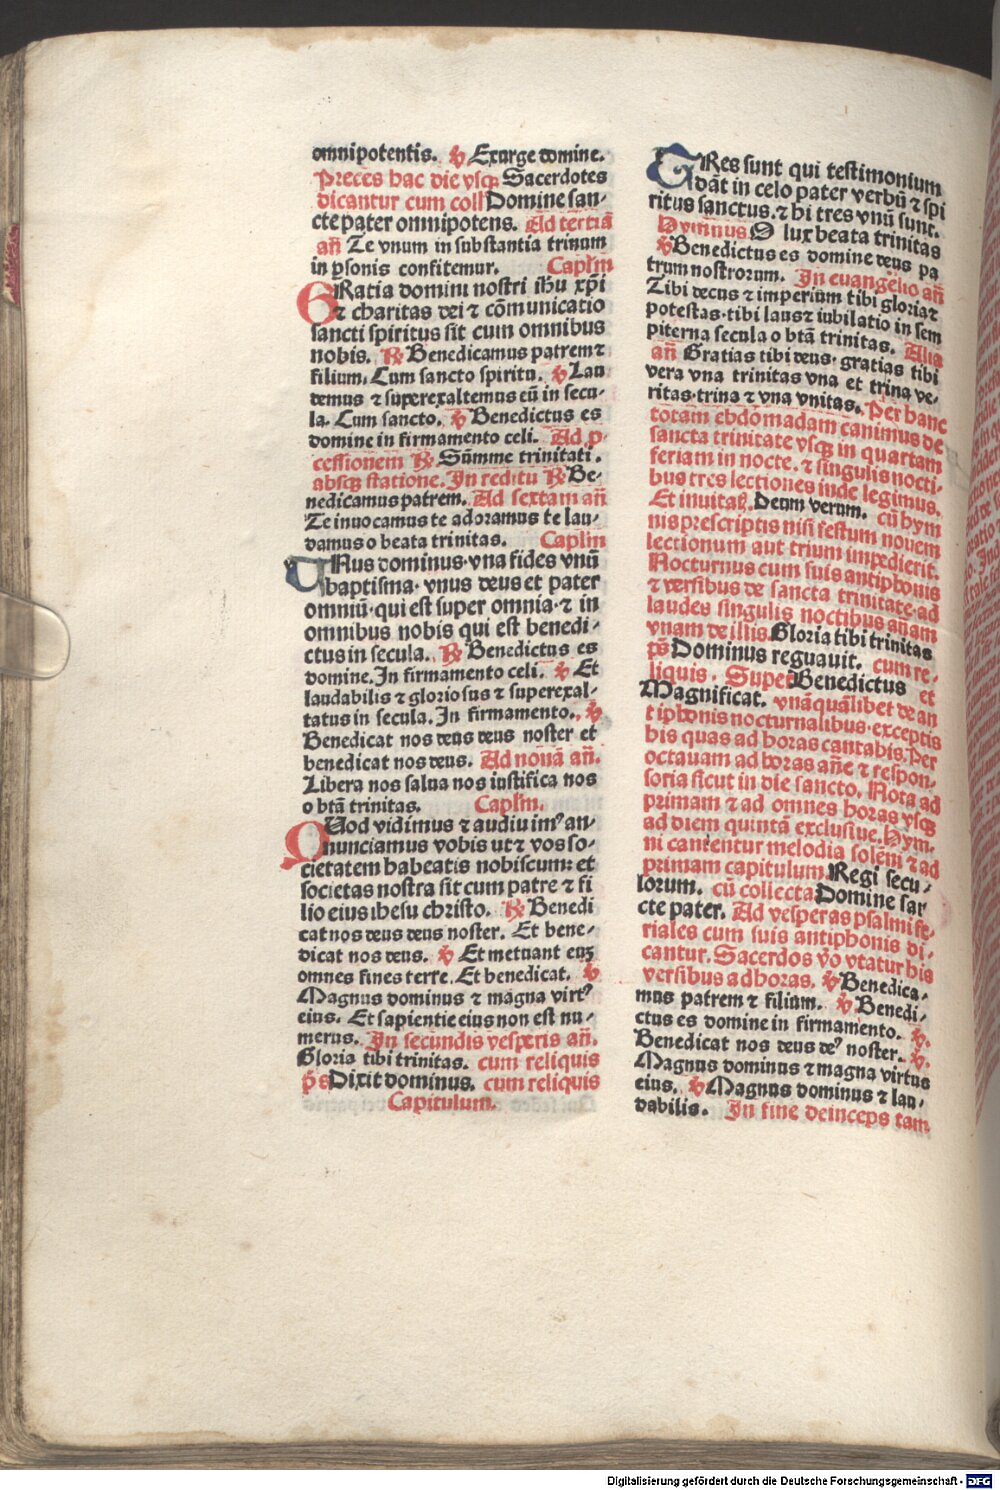 omnipotentis. ℣ Exurge domine.
Preces hac die vsqꝫ Sacerdotes
dicantur cum coll Domine san⸗
cte pater omnipotens. Ad tertiã
añ Te vnum in substantia trinum
in ꝑsonis confitemur. Caplm̃
GRatia domini nostri ihu xp̃i
⁊ charitas dei ⁊ cõmunicatio
sancti spiritus sit cum omnibus
nobis. ℟ Benedicamus patrem ⁊
filium. Cum sancto spiritu. ℣ Lau
demus ⁊ superexaltemus eũ in secu⸗
la. Cum sancto. ℣ Benedictus es
domine in firmamento celi. Ad ꝓ
cessionem ℟ Sũmme trinitati.
absqꝫ statione. In reditu ℟ Be⸗
nedicamus patrem. Ad sextam añ
Te inuocamus te adoramus te lau⸗
damus o beata trinitas. Caplm̃
VNus dominus· vna fides vnũ
baptisma· vnus deus et pater
omniũ· qui est super omnia· ⁊ in
omnibus nobis qui est benedi⸗
ctus in secula. ℟ Benedictus es
domine. In firmamento celi. ℣ Et
laudabilis ⁊ gloriosus ⁊ superexal⸗
tatus in secula. In firmamento. ℣
Benedicat nos deus deus noster et
benedicat nos deus. Ad nonã añ.
Libera nos salua nos iustifica nos
o btã trinitas. Caplm̃.
QUod vidimus ⁊ audiuimꝰ an⸗
nunciamus vobis ut ⁊ vos so⸗
cietatem habeatis nobiscum: et
societas nostra sit cum patre ⁊ fi
lio eius ihesu christo. ℟ Benedi
cat nos deus deus noster. Et bene⸗
dicat nos deus. ℣ Et metuant euꝫ
omnes fines terre. Et benedicat. ℣
Magnus dominus ⁊ magna virtꝰ
eius. Et sapientie eius non est nu⸗
merus. In secundis vesperis añ.
Gloria tibi trinitas. cum reliquis
p̃s Dixit dominus. cum reliquis
Capitulum.
TRes sunt qui testimonium
dãt in celo pater verbũ ⁊ spi
ritus sanctus. ⁊ hi tres vnũ sunt.
Hymnus. O lux beata trinitas
℣ Benedictus es domine deus pa
trum nostrorum. In euangelio añ
Tibi decus ⁊ imperium tibi gloria ⁊
potestas· tibi laus ⁊ iubilatio in sem
piterna secula o btã trinitas. Alia
añ Gratias tibi deus· gratias tibi
vera vna trinitas vna et trina ve⸗
ritas· trina ⁊ vna vnitas. Per hanc
totam ebdomadam canimus de
sancta trinitate vsqꝫ in quartam
feriam in nocte. ⁊ singulis nocti⸗
bus tres lectiones inde legimus.
Et inuitaꝶ. Deum verum. cũ hym
nis prescriptis nisi festum nouem
lectionum aut trium impedierit.
Nocturnus cum suis antiphonis
⁊ versibus de sancta trinitate· ad
laudes singulis noctibus añam
vnam de illis. Gloria tibi trinitas
p̃s Dominus regnauit. cum re⸗
liquis. Super Benedictus et
Magnificat. vnãquãlibet de an
tiphonis nocturnalibus· exceptis
his quas ad horas cantabis. Per
octauam ad horas añe ⁊ respon⸗
soria sicut in die sancto. Nota ad
primam ⁊ ad omnes horas vsqꝫ
ad diem quintã exclusiue. Hym⸗
ni cantentur melodia solẽni ⁊ ad
primam capitulum Regi secu⸗
lorum. cũ collecta Domine san
cte pater. Ad vesperas psalmi fe⸗
riales cum suis antiphonis di⸗
cantur. Sacerdos v̊o vtatur his
versibus ad horas. ℣ Benedica⸗
mus patrem ⁊ filium. ℣ Benedi⸗
ctus es domine in firmamento. ℣.
Benedicat nos deus deꝰ noster. ℣.
Magnus dominus ⁊ magna virtus
eius. ℣ Magnus dominus ⁊ lau⸗
dabilis. In fine deinceps tam
Digitalisierung gefördert durch die Deutsche Forschungsgemeinschaft - DFG